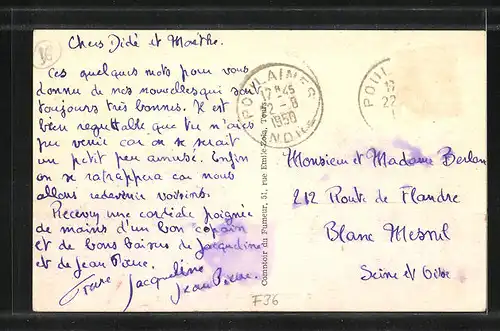 Chers Didé et Marthe.
Ces quelques mots pour vous
donner de nos nouvelles qui sont
toujours très bonnes. Il est
bien regrettable que tu n'aies
pu venir car on se serait
un petit peu amusé. Enfin
on se rattrappera car nous
allons redevenir voisins.
Recevez une cordiale poignée
de mains d'un bon copain
et de bons baisers de Jacqueline
et de Jean Pierre.
Jacqueline
Jean Pierre.
POULAINES
17 45
2 - 8
1950
INDRE
POUL
17
22
Comptoir du Fumeur, 51, rue Emile-Zola, Tours
Monsieur et Madame Berlan
212 Route de Flandre
Blanc Mesnil
Seine et Oise
F36